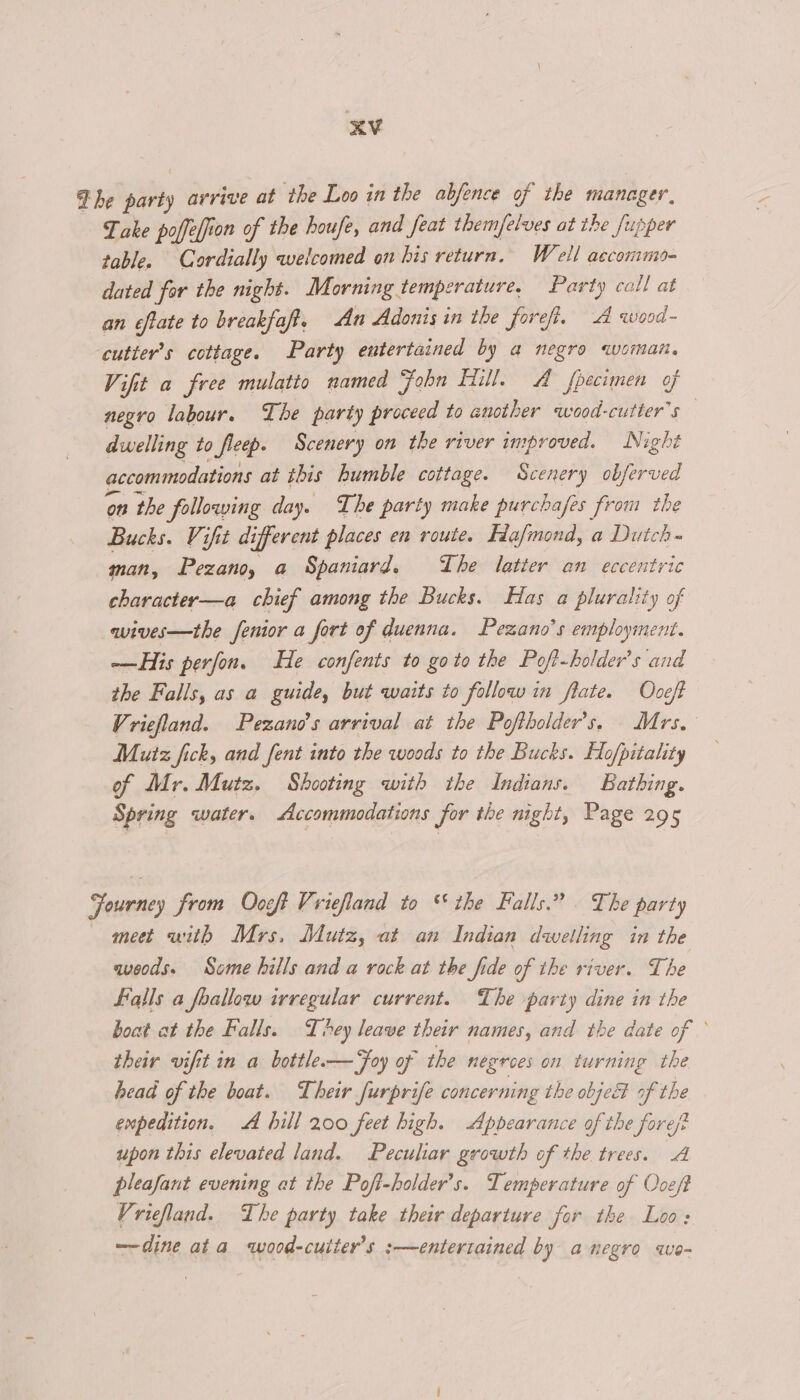 xv
The party arrive at the Loo in the abſence of the manager.
Take poſſeſſion of the houſe, and ſeat themſelves at the ſupper
table. Cordially welcomed on his return. Well accommo-
dated for the night. Morning temperature. Party call at
an eſtate to breakfaſt. An Adonis in the foreſt. A wood-
cutter's cottage. Party entertained by a negro woman.
Viſit a free mulatto named John Hill. A ſpecimen of
negro labour. The party proceed to another wood-cutter's
dwelling to ſleep. Scenery on the river improved. Night
accommodations at this humble cottage. Scenery obſerved
on the following day. The party make purchaſes from the
Bucks. Viſit different places en route. Haſmond, a Dutch-
man, Pezano, a Spaniard. The latter an eccentric
character—a chief among the Bucks. Has a plurality of
wives—the ſenior a ſort of duenna. Pezano's employment.
—His perſon. He conſents to go to the Poſt-holder's and
the Falls, as a guide, but waits to follow in ſtate. Ooeſt
Vrieſland. Pezano's arrival at the Poſtholder's. Mrs.
Mutz ſick, and ſent into the woods to the Bucks. Hoſpitality
of Mr. Mutz. Shooting with the Indians. Bathing.
Spring water. Accommodations for the night, Page 295
Journey from Ooeſt Vrieſland to “the Falls.” The party
meet with Mrs. Mutz, at an Indian dwelling in the
woods. Some hills and a rock at the ſide of the river. The
Falls a ſhallow irregular current. The party dine in the
boat at the Falls. They leave their names, and the date of
their viſit in a bottle.—Joy of the negroes on turning the
head of the boat. Their ſurpriſe concerning the object of the
expedition. A hill 200 feet high. Appearance of the foreſt
upon this elevated land. Peculiar growth of the trees. A
pleaſant evening at the Poſt-holder's. Temperature of Ooeſt
Vrieſland. The party take their departure for the Loo:
—dine at a wood-cutter's :—entertained by a negro wo-